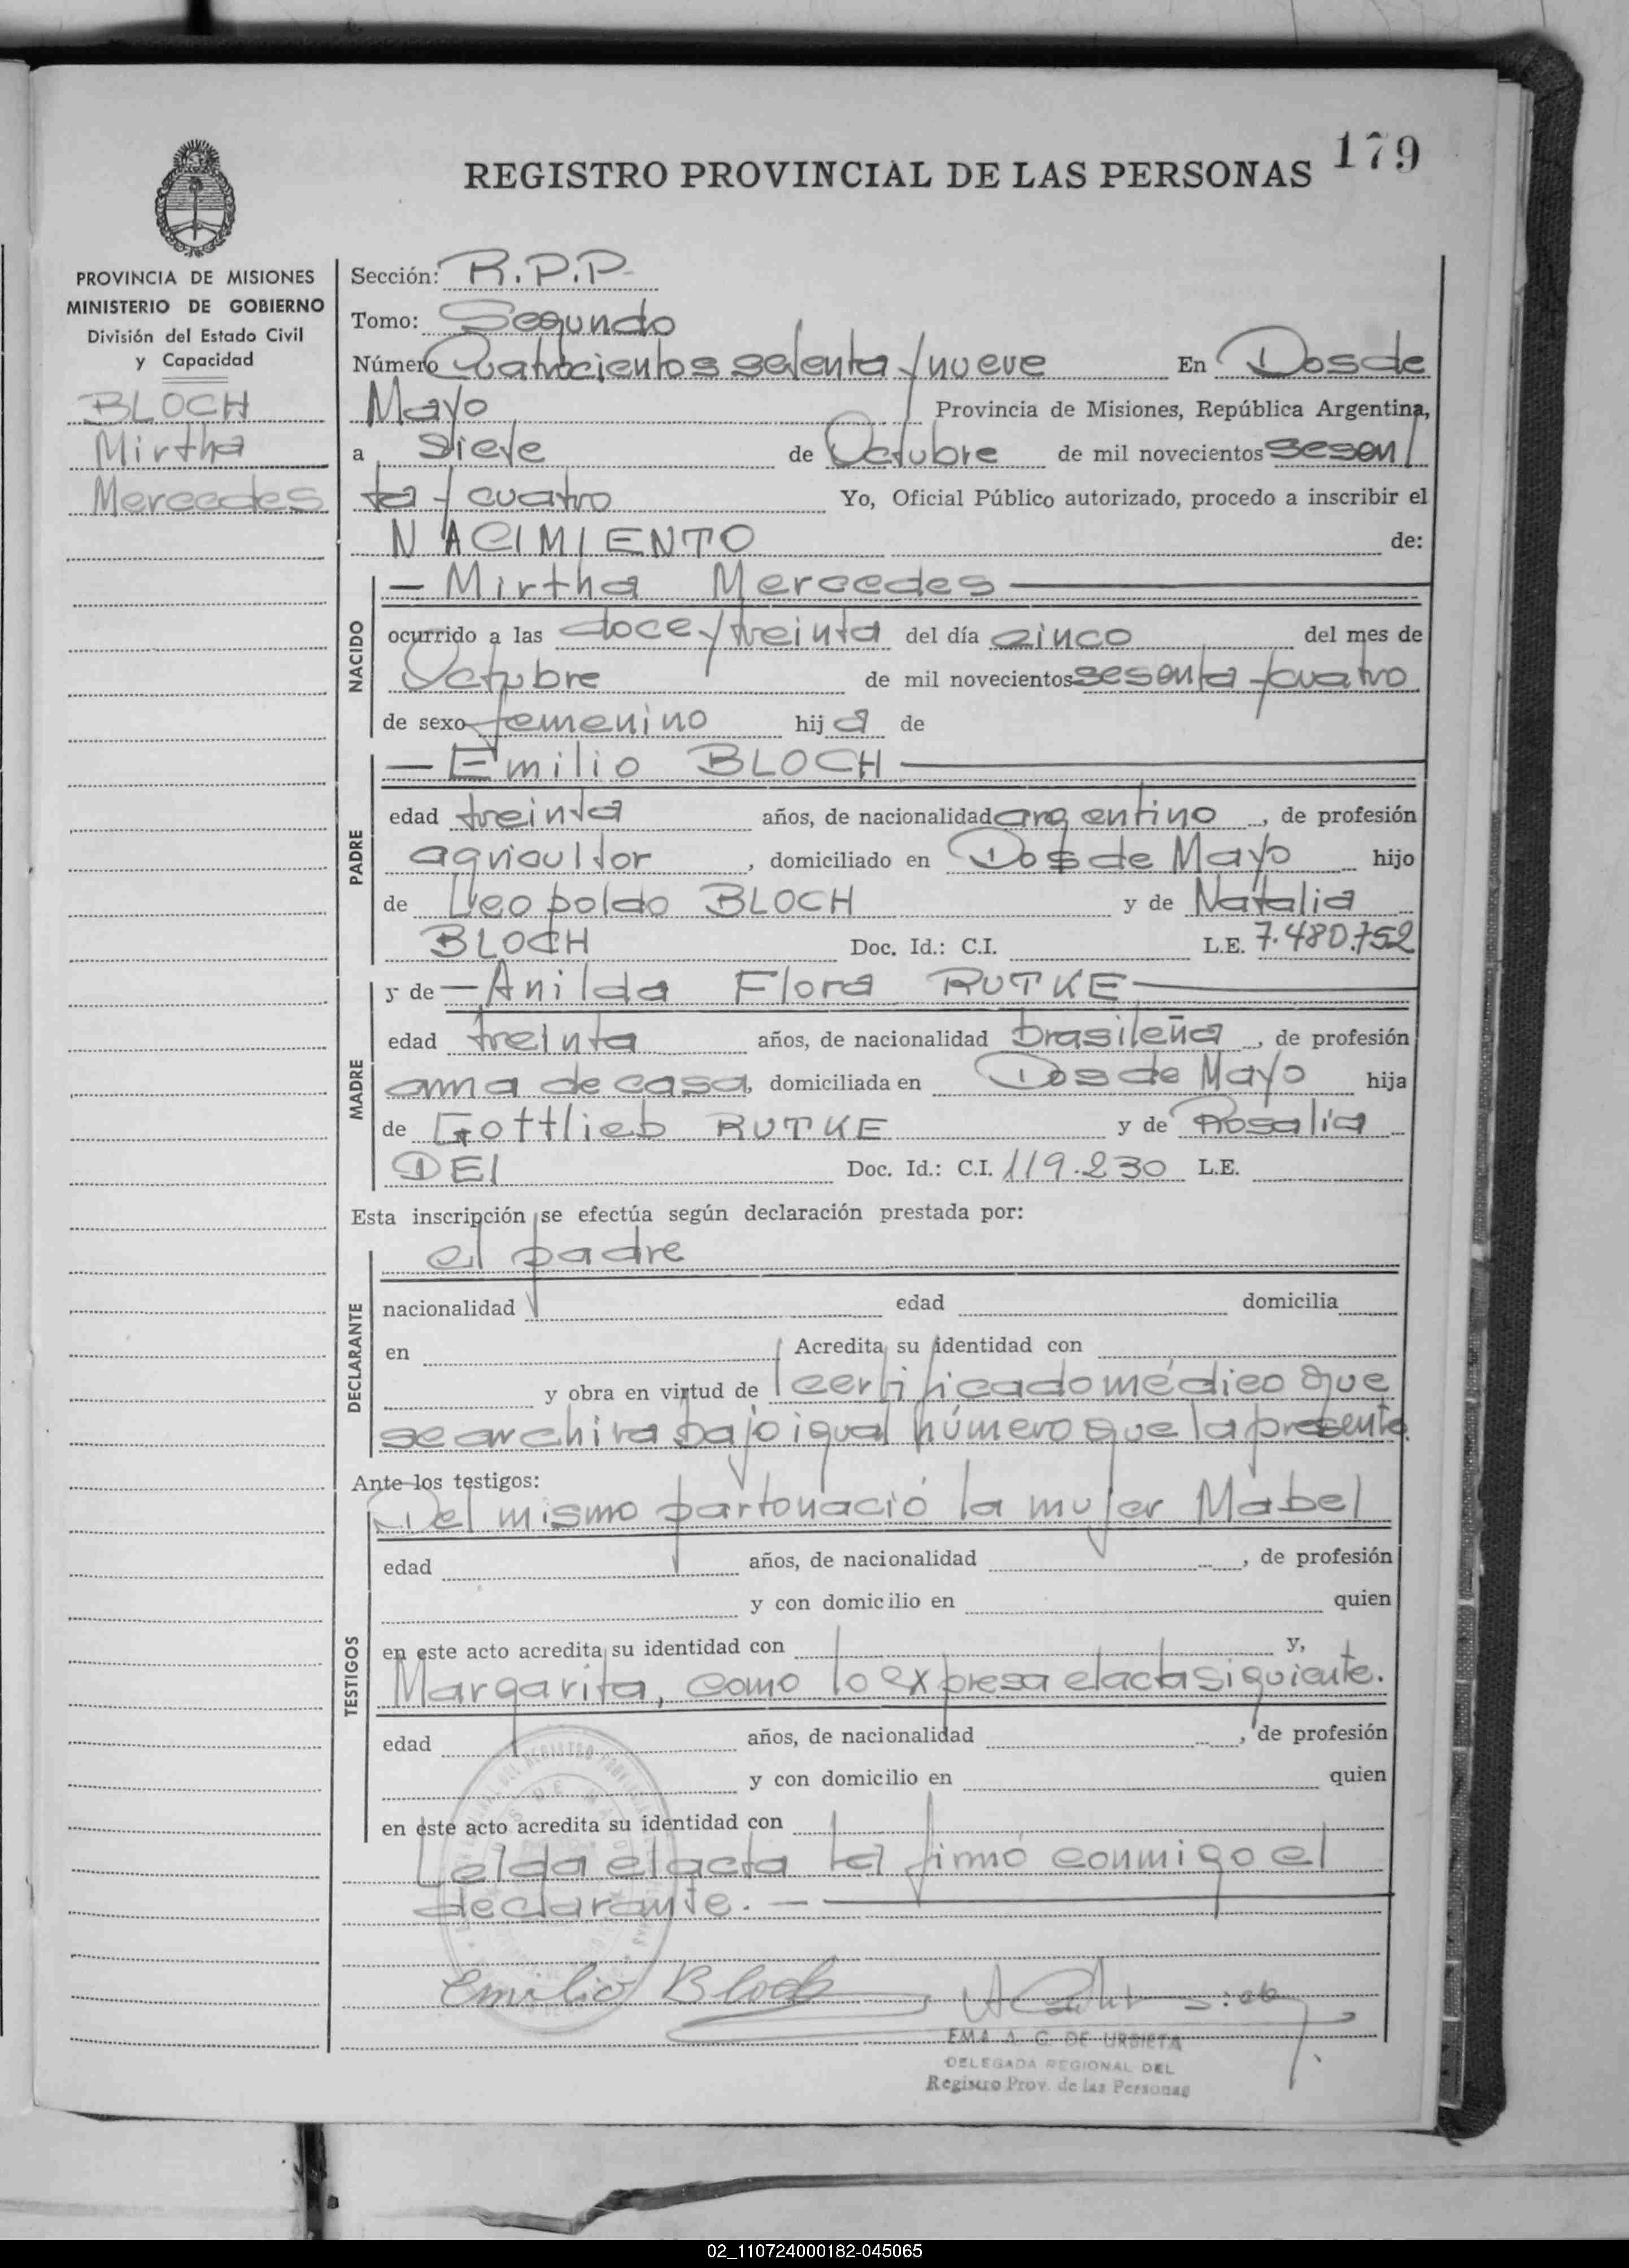 179
REGISTRO PROVINCIAL DE LAS PERSONAS
PROVINCIA DE MISIONES
MINISTERIO DE GOBIERNO
División del Estado Civil
y Capacidad
BLOCH
Mirtha
Mercedes
Sección: R.P.P.
Tomo: Segundo
Número Cuatrocientos setenta y nueve En Dos de
Mayo Provincia de Misiones, República Argentina,
a siete de Octubre de mil novecientos sesen
ta y cuatro Yo, Oficial Público autorizado, procedo a inscribir el
NACIMIENTO de:
NACIDO
— Mirtha Mercedes —
ocurrido a las doce y treinta del día cinco del mes de
Octubre de mil novecientos sesenta y cuatro
de sexo femenino hija de
PADRE
— Emilio BLOCH —
edad treinta años, de nacionalidad argentino, de profesión
agricultor, domiciliado en Dos de Mayo hijo
de Leopoldo BLOCH y de Natalia
BLOCH Doc. Id.: C.I. L.E. 7.480.752
MADRE
y de — Anilda Flora RUTKE —
edad treinta años, de nacionalidad brasileña, de profesión
ama de casa, domiciliada en Dos de Mayo hija
de Gottlieb RUTKE y de Rosalia
DEI Doc. Id.: C.I. 119.230 L.E.
Esta inscripción se efectúa según declaración prestada por:
DECLARANTE
el padre
nacionalidad edad domicilia
en Acredita su identidad con
y obra en virtud de certificado médico que
se archiva bajo igual número que la presente.
Ante los testigos:
TESTIGOS
Del mismo parto nació la mujer Mabel
edad años, de nacionalidad , de profesión
y con domicilio en quien
en este acto acredita su identidad con y,
Margarita, como lo expresa el acta siguiente.
edad años, de nacionalidad , de profesión
y con domicilio en quien
en este acto acredita su identidad con
Leída el acta la firmó conmigo el
declarante. —
Emilio Bloch
EMA A. C. DE URBIETA
DELEGADA REGIONAL DEL
Registro Prov. de las Personas
02_110724000182-045065